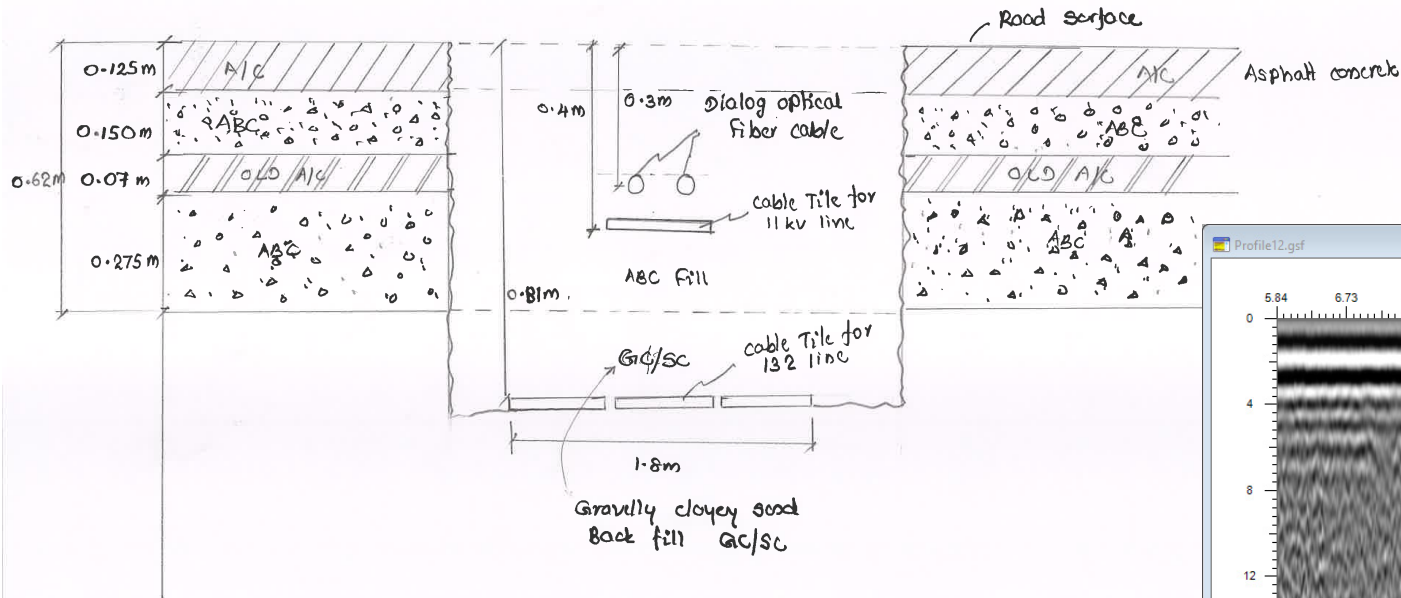 Road surface
0.125m
A/C
A/C
Asphalt concrete
0.4m
0.3m
Dialog optical
Fiber cable
0.150m
ABC
ABC
0.62m
0.07m
OLD A/C
OLD A/C
cable Tile for
11kv line
0.275m
ABC
ABC
ABC Fill
0.81m.
GC/SC
cable Tile for
132 line
1.8m
Gravelly clayey sand
Back fill GC/SC
Profile12.gsf
5.84 6.73
0
4
8
12